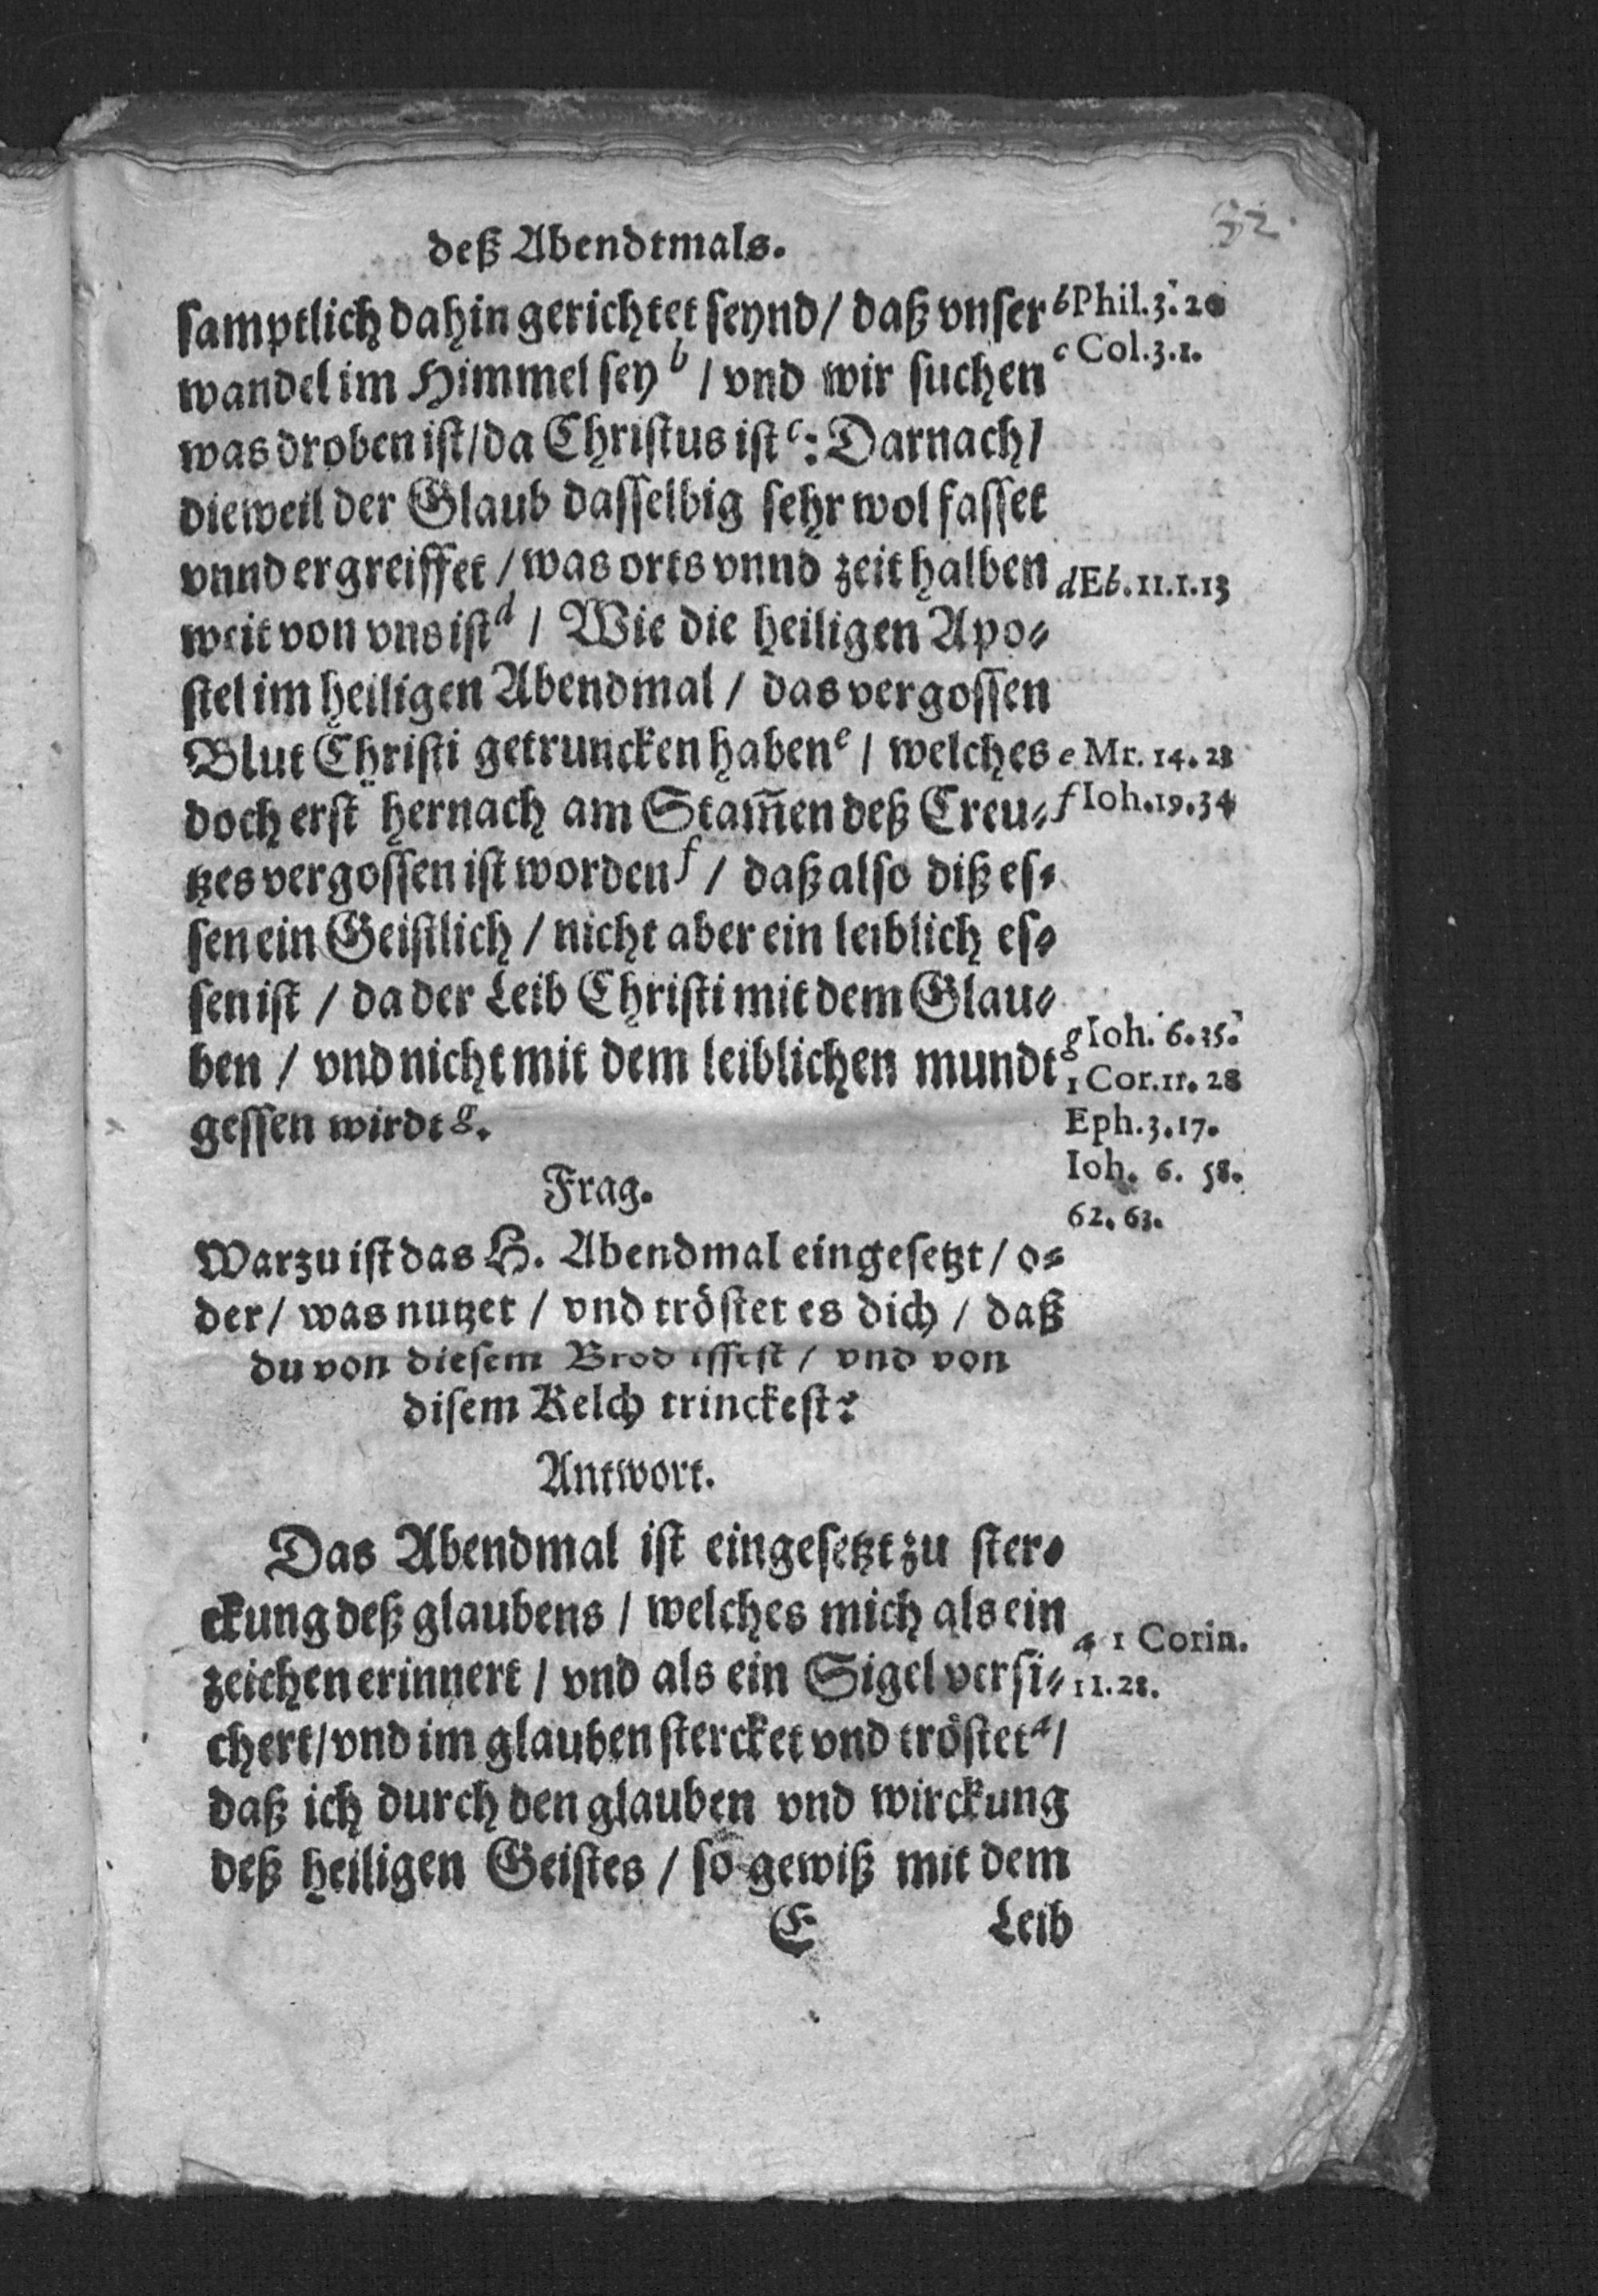 32.
deß Abendtmals.
samptlich dahin gerichtet seynd / daß vnser
wandel im Himmel sey b / vnd wir suchen
was droben ist / da Christus ist c: Darnach /
dieweil der Glaub dasselbig sehr wol fasset
vnnd ergreiffet / was orts vnnd zeit halben
weit von vns ist d / Wie die heiligen Apo⸗
stel im heiligen Abendmal / das vergossen
Blut Christi getruncken haben e / welches
doch erst hernach am Stam̃en deß Creu⸗
tzes vergossen ist worden f / daß also diß es⸗
sen ein Geistlich / nicht aber ein leiblich es⸗
sen ist / da der Leib Christi mit dem Glau⸗
ben / vnd nicht mit dem leiblichen mundt
gessen wirdt g.
b Phil. 3. 20
c Col. 3. 1.
d Eb. 11. 1. 13
e Mr. 14. 23
f Ioh. 19. 34
g Ioh. 6. 35.
1 Cor. 11. 28
Eph. 3. 17.
Ioh. 6. 58.
62. 63.
Frag.
Warzu ist das H. Abendmal eingesetzt / o⸗
der / was nutzet / vnd tröstet es dich / daß
du von diesem Brod issest / vnd von
disem Kelch trinckest?
Antwort.
Das Abendmal ist eingesetzt zu ster⸗
ckung deß glaubens / welches mich als ein
zeichen erinnert / vnd als ein Sigel versi⸗
chert / vnd im glauben stercket vnd tröstet a /
daß ich durch den glauben vnd wirckung
deß heiligen Geistes / so gewiß mit dem
a 1 Corin.
11. 28.
E Leib